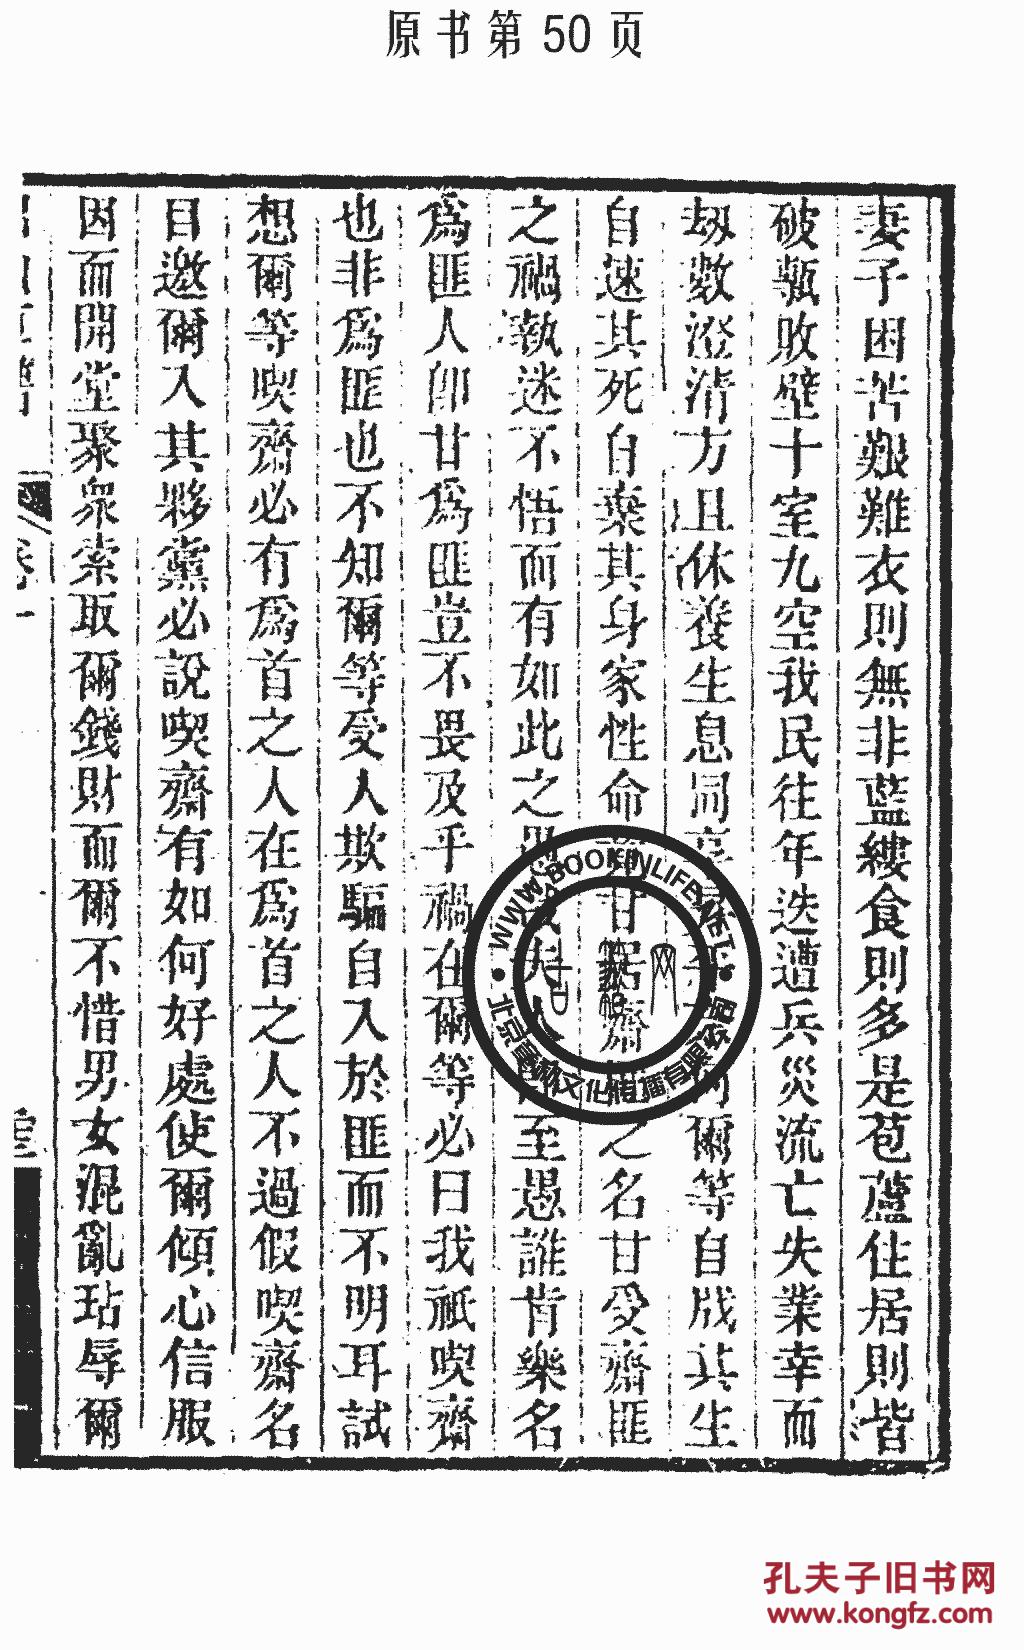 原书第 50 页
妻子困苦艱難衣則無非藍縷食則多是苞蘆住居則皆
破瓶敗壁十室九空我民往年迭遭兵災流亡失業幸而
劫數澄清方且休養生息同享爾等自戕其生
自速其死自棄其身家性命甘居齋之名甘受齋匪
之禍執迷不悟而有如此之至愚誰肯樂名
為匪人卽甘為匪豈不畏及乎禍在爾等必曰我祇喫齋
也非為匪也不知爾等受人欺騙自入於匪而不明耳試
想爾等喫齋必有為首之人在為首之人不過假喫齋名
目邀爾入其夥黨必說喫齋有如何好處使爾傾心信服
因而開堂聚衆索取爾錢財而爾不惜男女混亂玷辱爾
卷一
WWW.BOOKINLIFE.NET
北京 文化传播有限公司
孔夫子旧书网
www.kongfz.com